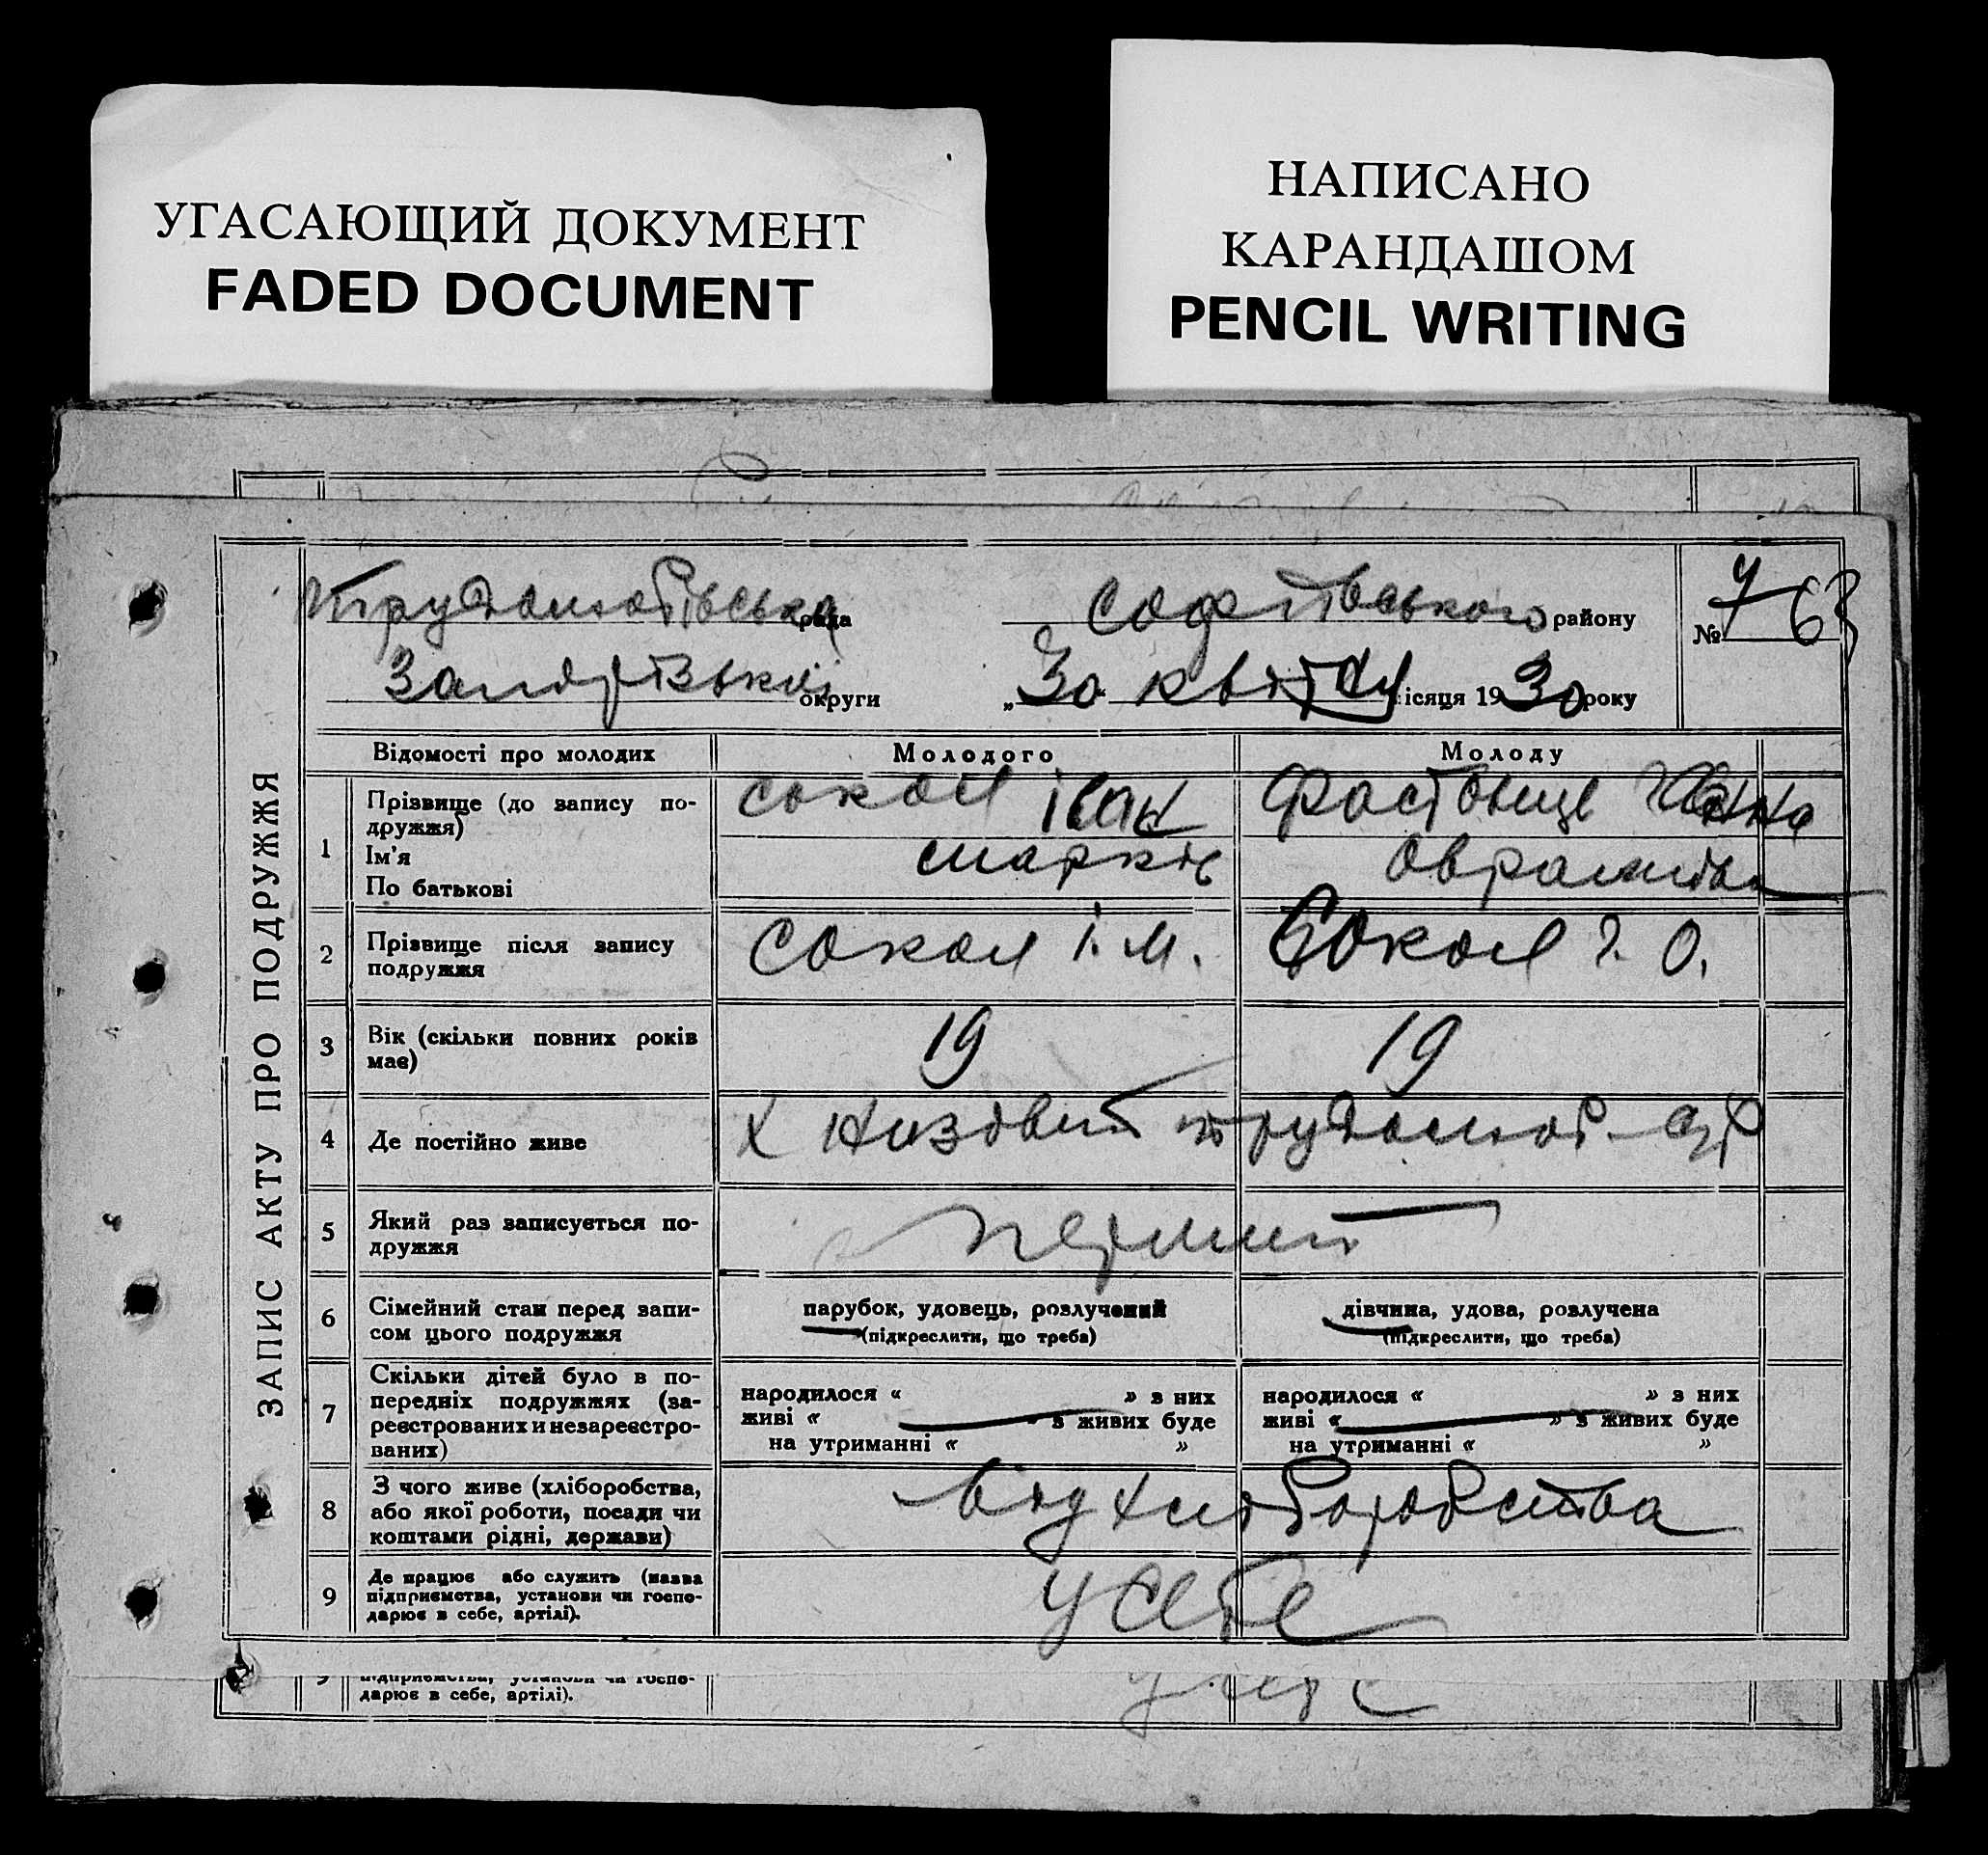 УГАСАЮЩИЙ ДОКУМЕНТ
FADED DOCUMENT
НАПИСАНО
КАРАНДАШОМ
PENCIL WRITING
ЗАПИС АКТУ ПРО ПОДРУЖЖЯ
Трудолюбівська рада
Софіївського району
№ 63
Запорізької округи
„30 квітня місяця 1930 року
Відомості про молодих
Молодого
Молоду
1
Прізвище (до запису по-
дружжя)
Ім'я
По батькові
Сокол Іван
Марків
Фастовець Ганна
Оврамівна
2
Прізвище після запису
подружжя
Сокол І. М.
Сокол Г. О.
3
Вік (скільки повних років
має)
19
19
4
Де постійно живе
Х Низовий Трудолюб.
5
Який раз записується по-
дружжя
перший
6
Сімейний стан перед запи-
сом цього подружжя
парубок, удовець, розлучений
(підкреслити, що треба)
дівчина, удова, розлучена
(підкреслити, що треба)
7
Скільки дітей було в по-
передніх подружжях (за-
реєстрованих и незареєстро-
ваних)
народилося « » з них
живі « » з живих буде
на утриманні « »
народилося « » з них
живі « » з живих буде
на утриманні « »
8
З чого живе (хліборобства,
або якої роботи, посади чи
коштами рідні, держави)
від хліборобства
9
Де працює або служить (назва
підприємства, установи чи госпо-
дарює в себе, артілі).
у себе
підприємства, установи чи госпо-
дарює в себе, артілі).